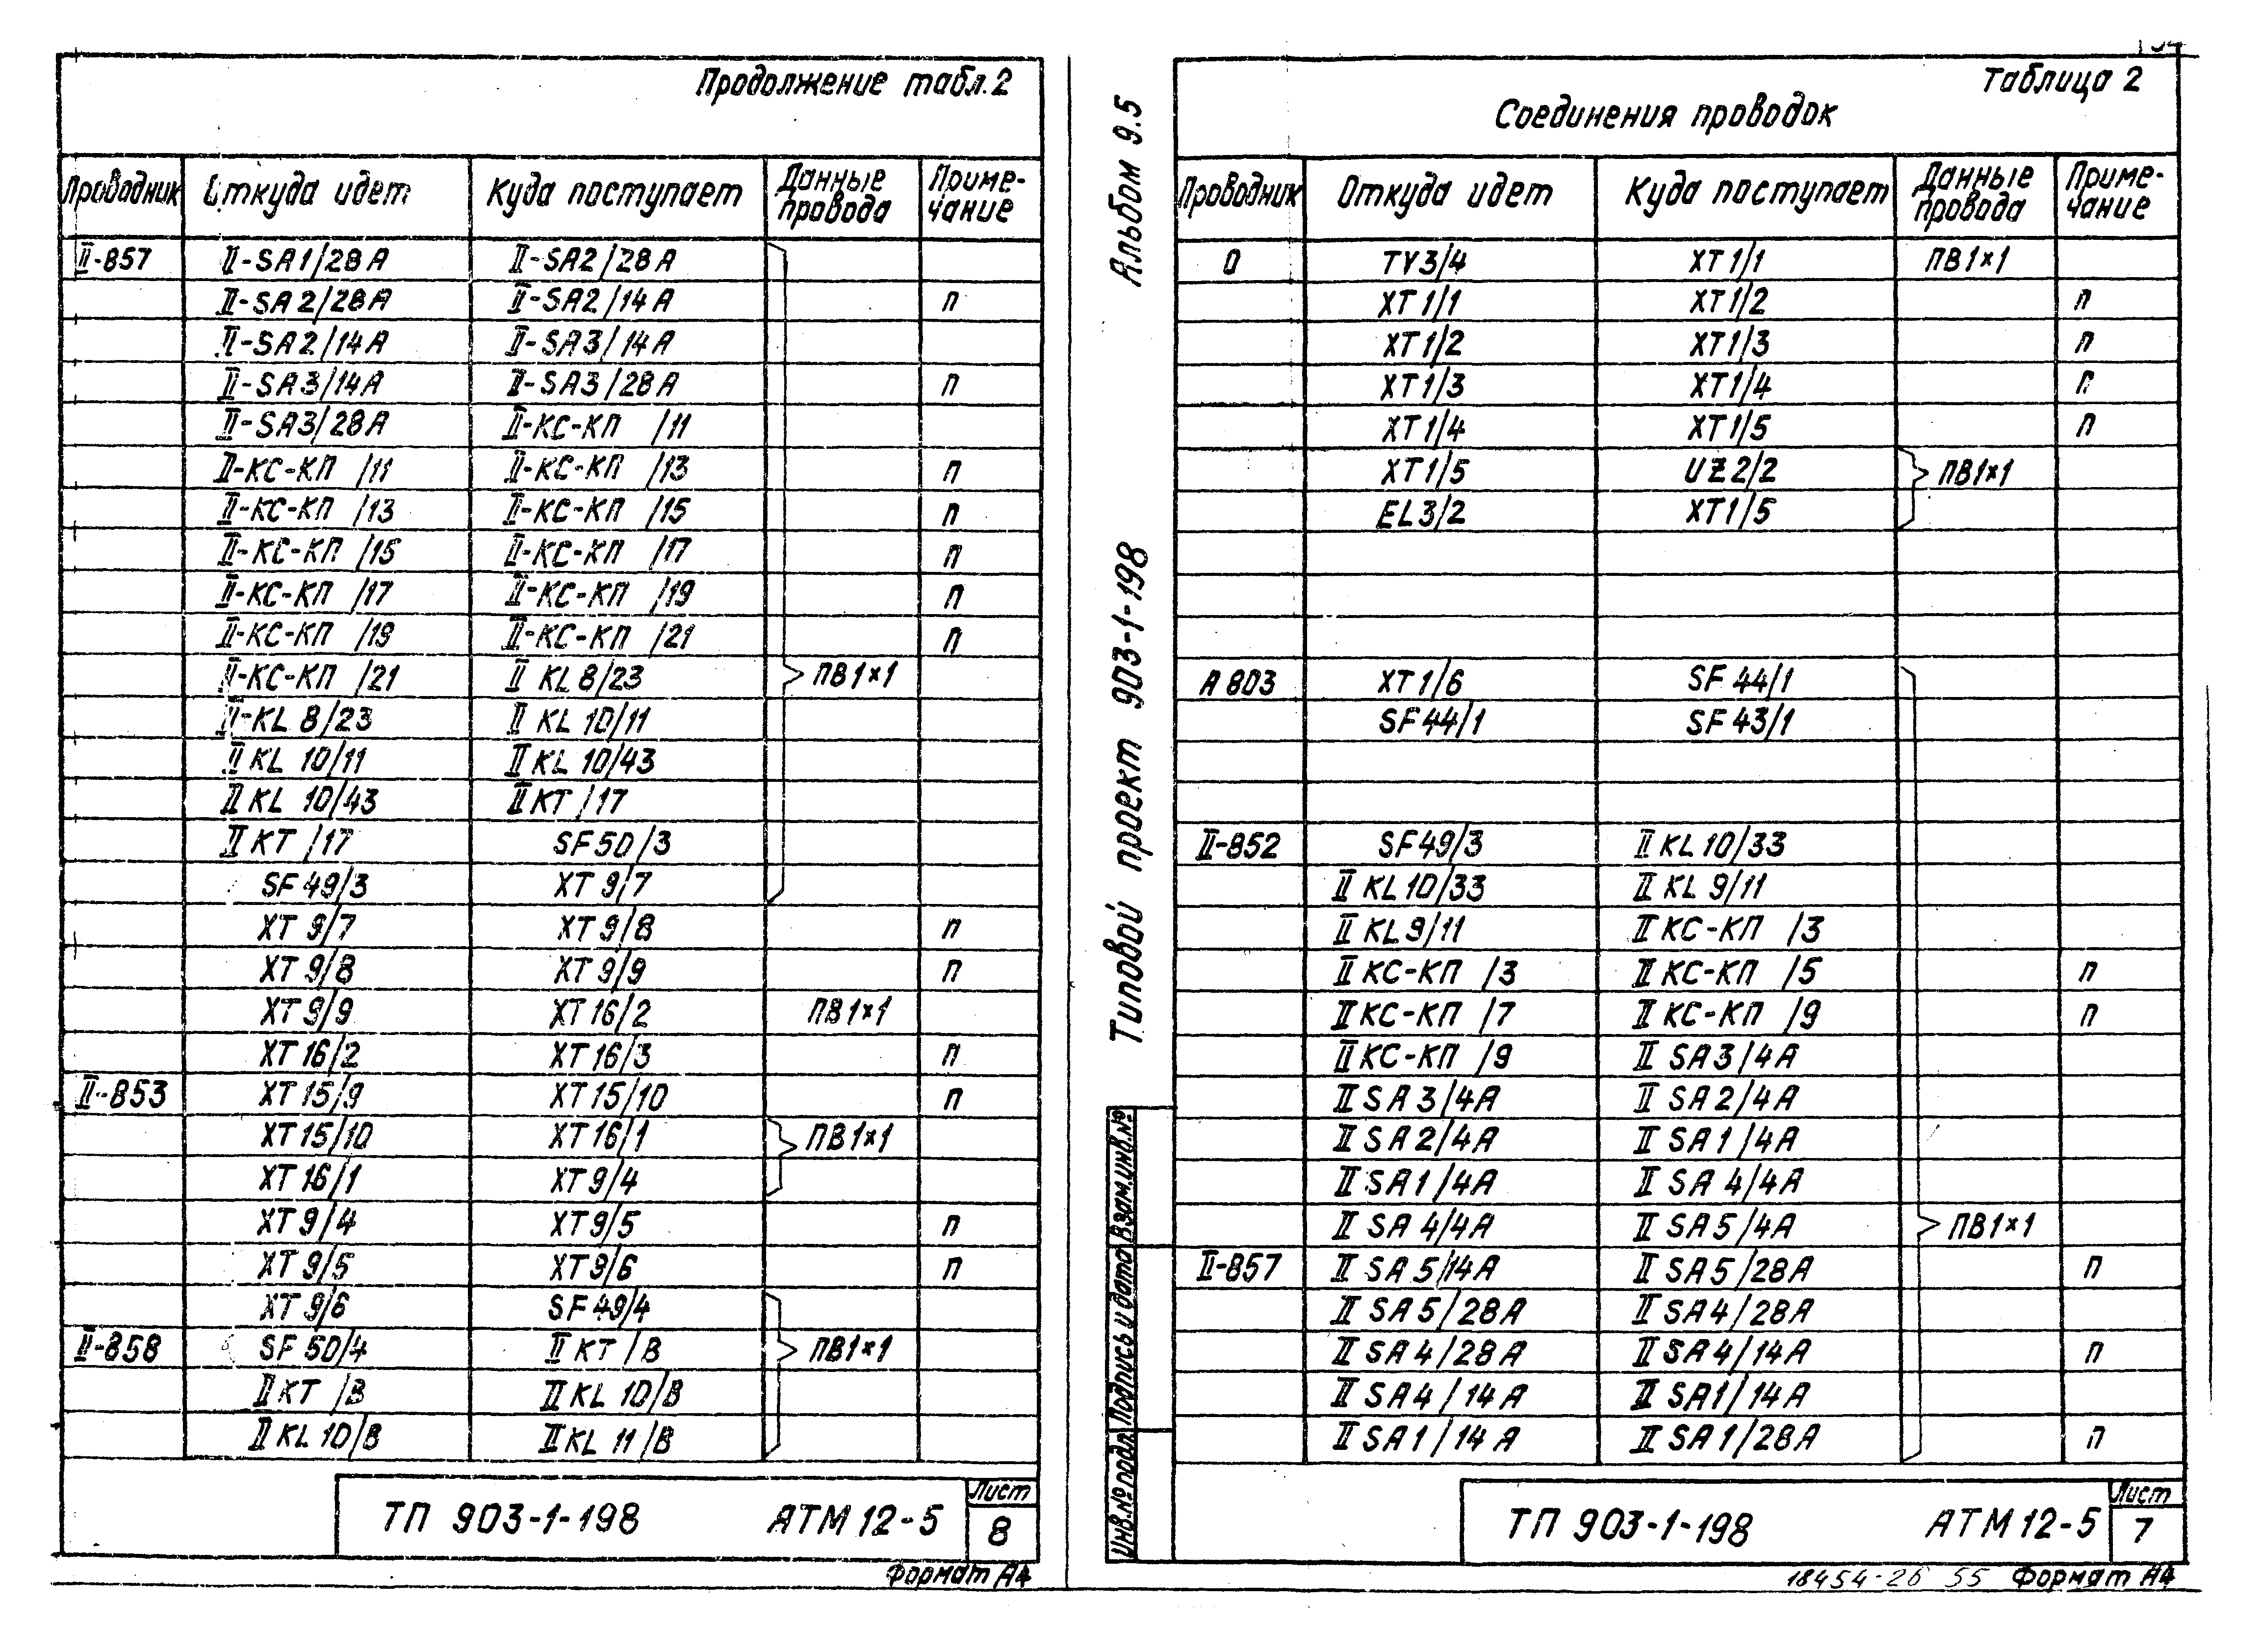 Продолжение табл.2
Проводник Откуда идет Куда поступает Данные провода Приме-чание
II-857 II-SA1/28A II-SA2/28A
II-SA2/28A II-SA2/14A п
II-SA2/14A II-SA3/14A
II-SA3/14A II-SA3/28A п
II-SA3/28A II-КС-КП /11
II-КС-КП /11 II-КС-КП /13 п
II-КС-КП /13 II-КС-КП /15 п
II-КС-КП /15 II-КС-КП /17 п
II-КС-КП /17 II-КС-КП /19 п
II-КС-КП /19 II-КС-КП /21 п
II-КС-КП /21 II KL 8/23 ПВ1×1
II-KL 8/23 II KL 10/11
II KL 10/11 II KL 10/43
II KL 10/43 II KT /17
II KT /17 SF50/3
SF49/3 XT9/7
XT9/7 XT9/8 п
XT9/8 XT9/9 п
XT9/9 XT16/2 ПВ1×1
XT16/2 XT16/3 п
II-853 XT15/9 XT15/10 п
XT15/10 XT16/1 ПВ1×1
XT16/1 XT9/4
XT9/4 XT9/5 п
XT9/5 XT9/6 п
XT9/6 SF49/4
II-858 SF50/4 II KT /B ПВ1×1
II KT /B II KL 10/B
II KL 10/B II KL 11/B
ТП 903-1-198 АТМ12-5 Лист 8
Формат А4
Альбом 9.5
Типовой проект 903-1-198
Инв.№подл. Подпись и дата Взам.инв.№
Таблица 2
Соединения проводок
Проводник Откуда идет Куда поступает Данные провода Приме-чание
0 TV3/4 XT1/1 ПВ1×1
XT1/1 XT1/2 п
XT1/2 XT1/3 п
XT1/3 XT1/4 п
XT1/4 XT1/5 п
XT1/5 UZ2/2 ПВ1×1
EL3/2 XT1/5
А803 XT1/6 SF44/1
SF44/1 SF43/1
II-852 SF49/3 II KL10/33
II KL10/33 II KL 9/11
II KL9/11 II КС-КП /3
II КС-КП /3 II КС-КП /5 п
II КС-КП /7 II КС-КП /9 п
II КС-КП /9 II SA3/4A
II SA3/4A II SA2/4A
II SA2/4A II SA1/4A
II SA1/4A II SA4/4A
II SA4/4A II SA5/4A ПВ1×1
II-857 II SA5/14A II SA5/28A п
II SA5/28A II SA4/28A
II SA4/28A II SA4/14A п
II SA4/14A II SA1/14A
II SA1/14A II SA1/28A п
ТП 903-1-198 АТМ12-5 Лист 7
18454-26 55 Формат А4